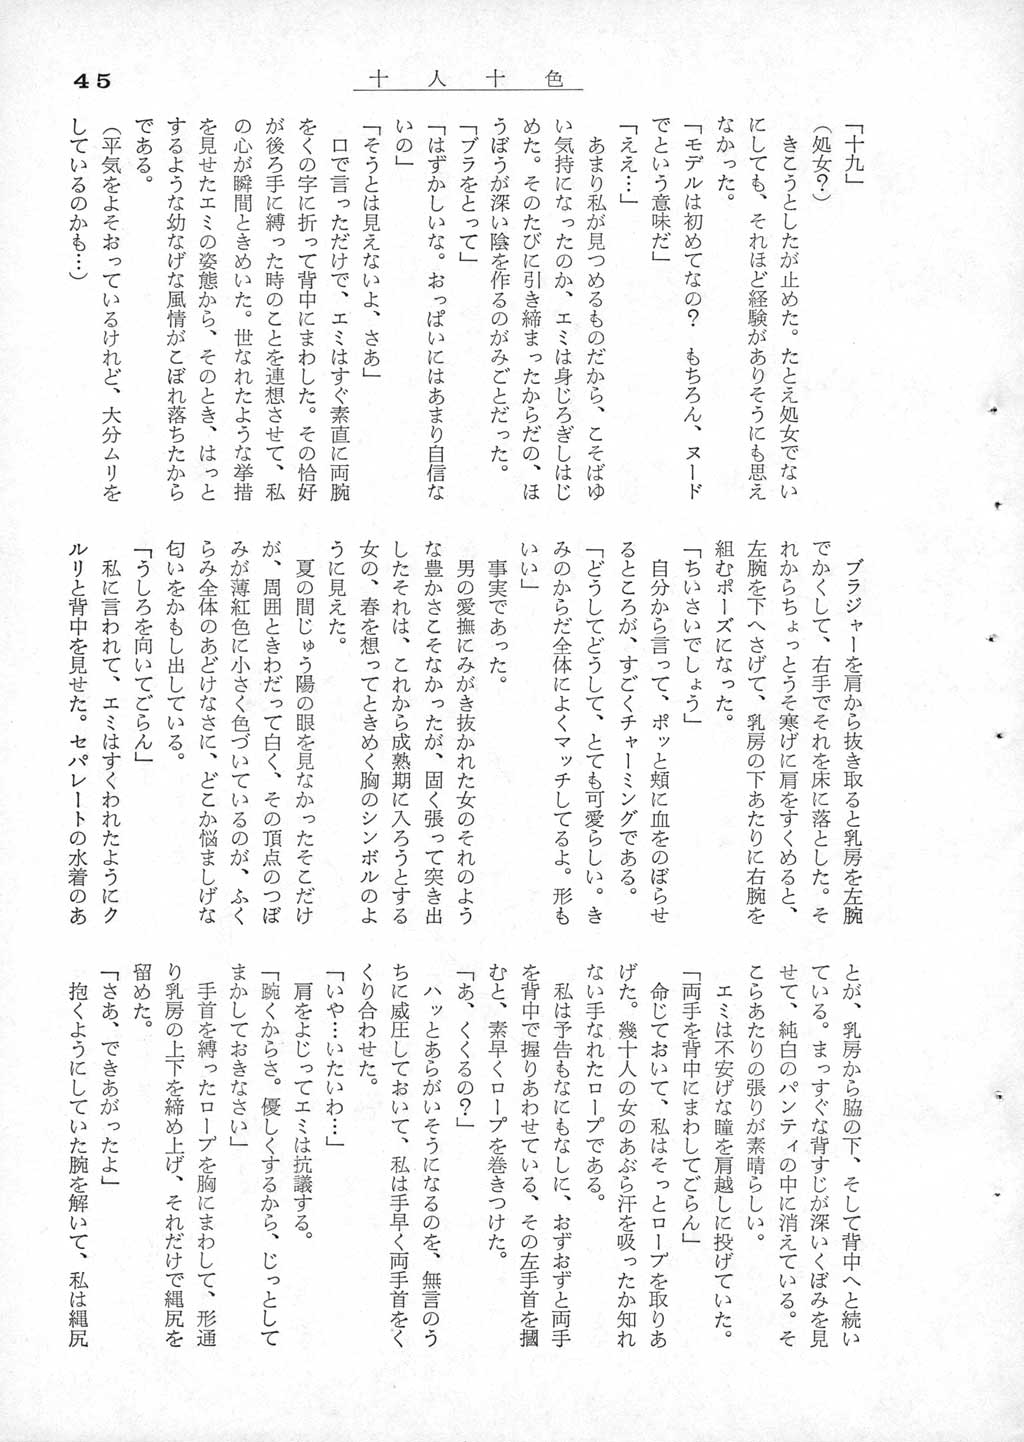 45
十人十色
「十九」
（処女？）
きこうとしたが止めた。たとえ処女でない
にしても、それほど経験がありそうにも思え
なかった。
「モデルは初めてなの？　もちろん、ヌード
でという意味だ」
「ええ…」
あまり私が見つめるものだから、こそばゆ
い気持になったのか、エミは身じろぎしはじ
めた。そのたびに引き締まったからだの、ほ
うぼうが深い陰を作るのがみごとだった。
「ブラをとって」
「はずかしいな。おっぱいにはあまり自信な
いの」
「そうとは見えないよ、さあ」
口で言っただけで、エミはすぐ素直に両腕
をくの字に折って背中にまわした。その恰好
が後ろ手に縛った時のことを連想させて、私
の心が瞬間ときめいた。世なれたような挙措
を見せたエミの姿態から、そのとき、はっと
するような幼なげな風情がこぼれ落ちたから
である。
（平気をよそおっているけれど、大分ムリを
しているのかも…）
ブラジャーを肩から抜き取ると乳房を左腕
でかくして、右手でそれを床に落とした。そ
れからちょっとうそ寒げに肩をすくめると、
左腕を下へさげて、乳房の下あたりに右腕を
組むポーズになった。
「ちいさいでしょう」
自分から言って、ポッと頬に血をのぼらせ
るところが、すごくチャーミングである。
「どうしてどうして、とても可愛らしい。き
みのからだ全体によくマッチしてるよ。形も
いい」
事実であった。
男の愛撫にみがき抜かれた女のそれのよう
な豊かさこそなかったが、固く張って突き出
したそれは、これから成熟期に入ろうとする
女の、春を想ってときめく胸のシンボルのよ
うに見えた。
夏の間じゅう陽の眼を見なかったそこだけ
が、周囲ときわだって白く、その頂点のつぼ
みが薄紅色に小さく色づいているのが、ふく
らみ全体のあどけなさに、どこか悩ましげな
匂いをかもし出している。
「うしろを向いてごらん」
私に言われて、エミはすくわれたようにク
ルリと背中を見せた。セパレートの水着のあ
とが、乳房から脇の下、そして背中へと続い
ている。まっすぐな背すじが深いくぼみを見
せて、純白のパンティの中に消えている。そ
こらあたりの張りが素晴らしい。
エミは不安げな瞳を肩越しに投げていた。
「両手を背中にまわしてごらん」
命じておいて、私はそっとロープを取りあ
げた。幾十人の女のあぶら汗を吸ったか知れ
ない手なれたロープである。
私は予告もなにもなしに、おずおずと両手
を背中で握りあわせている、その左手首を摑
むと、素早くロープを巻きつけた。
「あ、くくるの？」
ハッとあらがいそうになるのを、無言のう
ちに威圧しておいて、私は手早く両手首をく
くり合わせた。
「いや…いたいわ…」
肩をよじってエミは抗議する。
「踠くからさ。優しくするから、じっとして
まかしておきなさい」
手首を縛ったロープを胸にまわして、形通
り乳房の上下を締め上げ、それだけで縄尻を
留めた。
「さあ、できあがったよ」
抱くようにしていた腕を解いて、私は縄尻